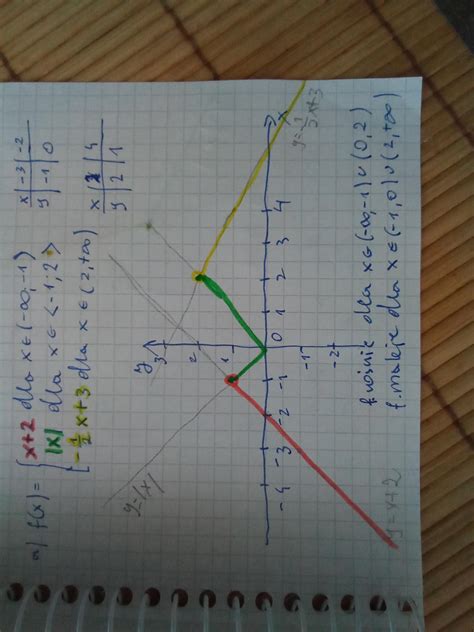 a) f(x) = { x+2 dla x∈(-∞,-1)
|x| dla x∈<-1;2>
-1/2x+3 dla x∈(2,+∞)
x | -3 | -2
y | -1 | 0
x | 2 | 4
y | 2 | 1
y=|x|
y
3
2
1
-4 -3 -2 -1 0 1 2 3 4 x
-1
-2
y=x+2
y=-1/2x+3
f. rośnie dla x∈(-∞,-1)∪(0,2)
f. maleje dla x∈(-1,0)∪(2,+∞)